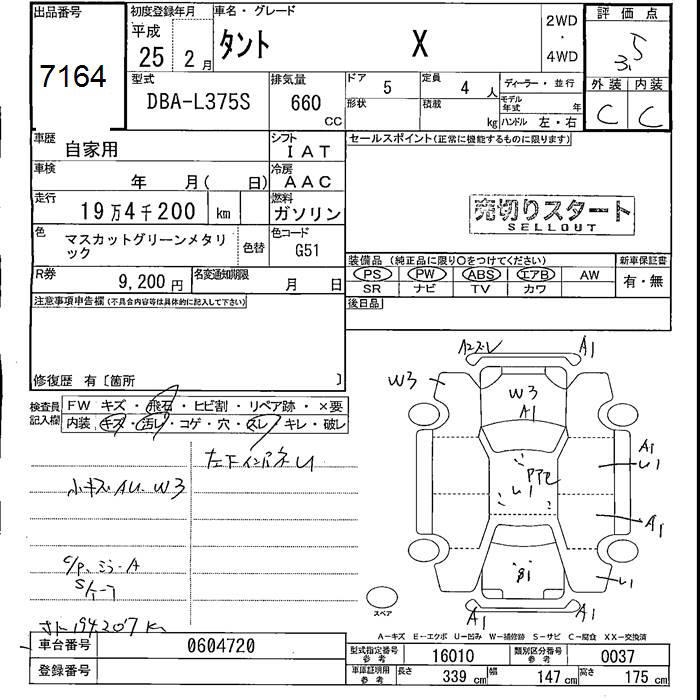 出品番号 初度登録年月 車名・グレード 2WD・4WD 評価点
7164 平成25年2月 タント X 3.5
型式 排気量 ドア 5 定員 4人 ディーラー・並行 外装 内装
DBA-L375S 660CC 形状 積載 kg モデル年式 年 ハンドル 左・右 C C
車歴 自家用 シフト IAT セールスポイント(正常に機能するものに限ります)
車検 年 月( 日) 冷房 AAC
走行 19万4千200 km 燃料 ガソリン
売切りスタート
SELLOUT
色 マスカットグリーンメタリック 色替 色コード G51
装備品(純正品に限り○をつけてください) 新車保証書
R券 9,200円 名変通知期限 月 日
PS PW ABS エアB AW 有・無
SR ナビ TV カワ
注意事項申告欄(不具合内容等は具体的に記入して下さい) 後日品
修復歴 有〔箇所 〕
検査員記入欄 FW キズ・飛石・ヒビ割・リペア跡・×要
内装 キズ・汚レ・コゲ・穴・スレ・キレ・破レ
左下インパネU
小キズAU.W3
C/P、ミラーA
A1
W3
W3
A1
A1
U1
U1
A1
U1
A1
A1
スペア
A―キズ E―エクボ U―凹み W―補修跡 S―サビ C―腐食 XX―交換済
194207K
車台番号 0604720 型式指定番号 参考 16010 類別区分番号 参考 0037
登録番号 車庫証明用 参考 長さ 339cm 幅 147cm 高さ 175cm